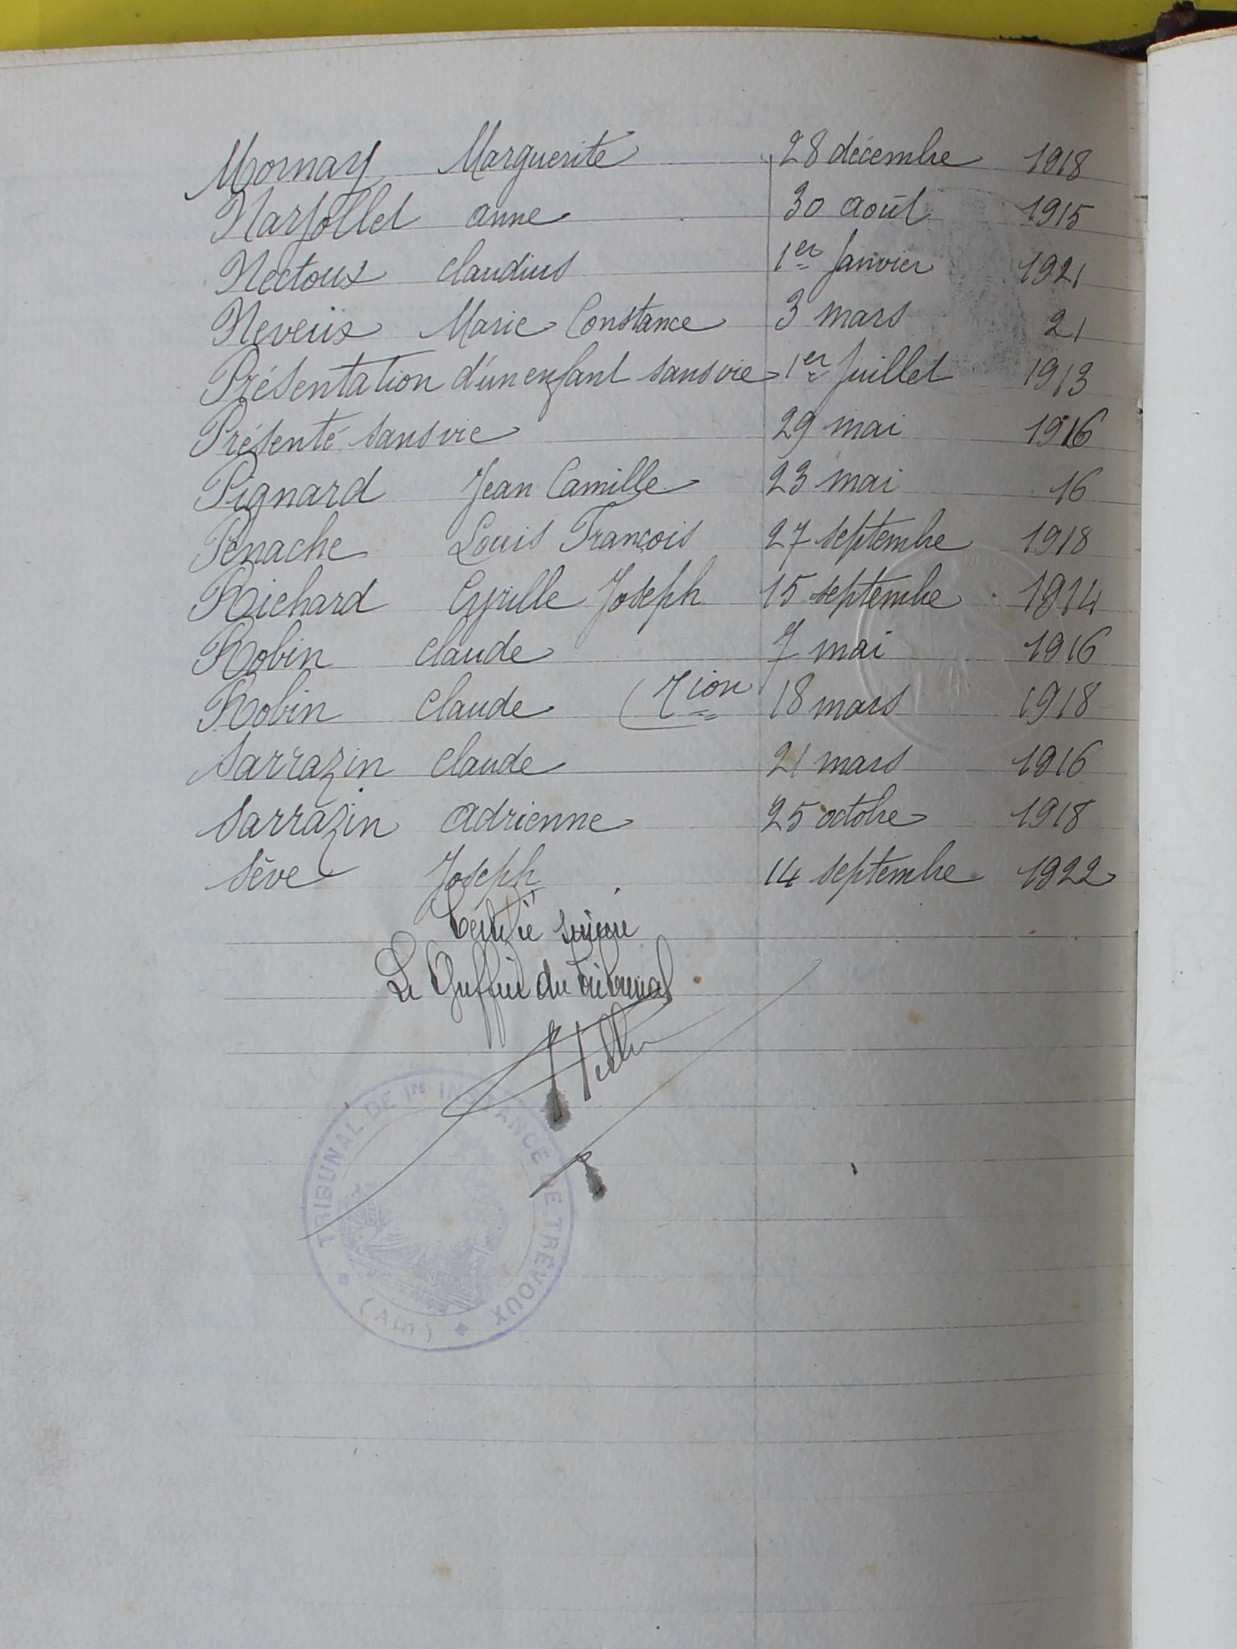 Mornay Marguerite 28 décembre 1918
Narjollet anne 30 août 1915
Nectoux claudius 1er Janvier 1921
Neveux Marie Constance 3 mars 21
Présentation d'un enfant sans vie 1er Juillet 1913
Présenté sans vie 29 mai 1916
Pignard Jean Camille 23 mai 16
Penache Louis François 27 septembre 1918
Richard Cyrille Joseph 15 septembre 1914
Robin claude 7 mai 1916
Robin claude (Tion 18 mars 1918
Sarrazin claude 21 mars 1916
Sarrazin adrienne 25 octobre 1918
Sève Joseph 14 septembre 1922
Certifié sincère
Le Greffier du Tribunal
TRIBUNAL DE 1re INSTANCE DE TRÉVOUX
(Ain)